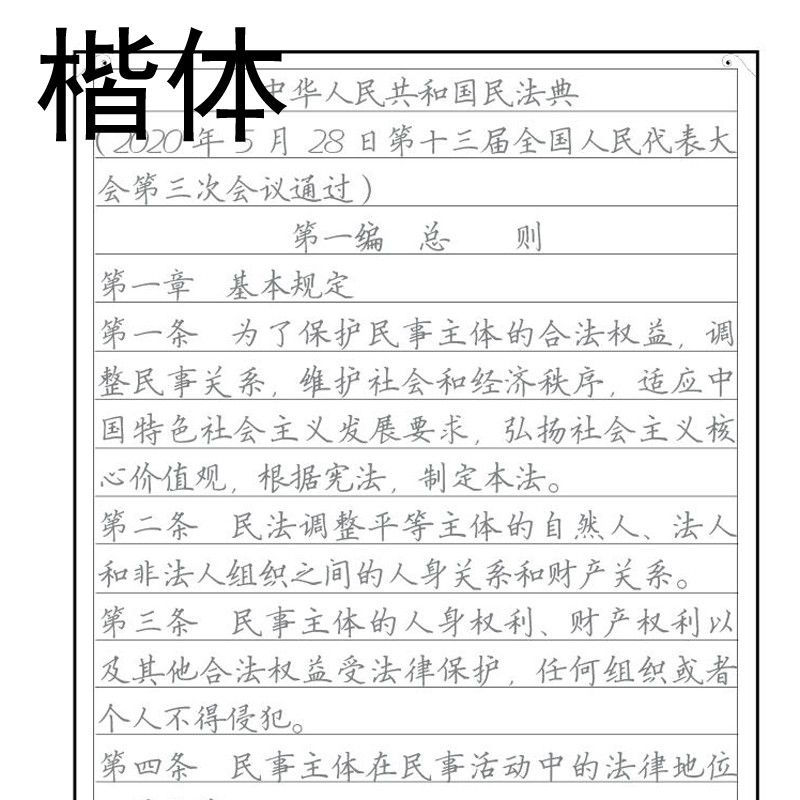 楷体
中华人民共和国民法典
(2020年5月28日第十三届全国人民代表大
会第三次会议通过)
第一编 总 则
第一章 基本规定
第一条 为了保护民事主体的合法权益,调
整民事关系,维护社会和经济秩序,适应中
国特色社会主义发展要求,弘扬社会主义核
心价值观,根据宪法,制定本法。
第二条 民法调整平等主体的自然人、法人
和非法人组织之间的人身关系和财产关系。
第三条 民事主体的人身权利、财产权利以
及其他合法权益受法律保护,任何组织或者
个人不得侵犯。
第四条 民事主体在民事活动中的法律地位